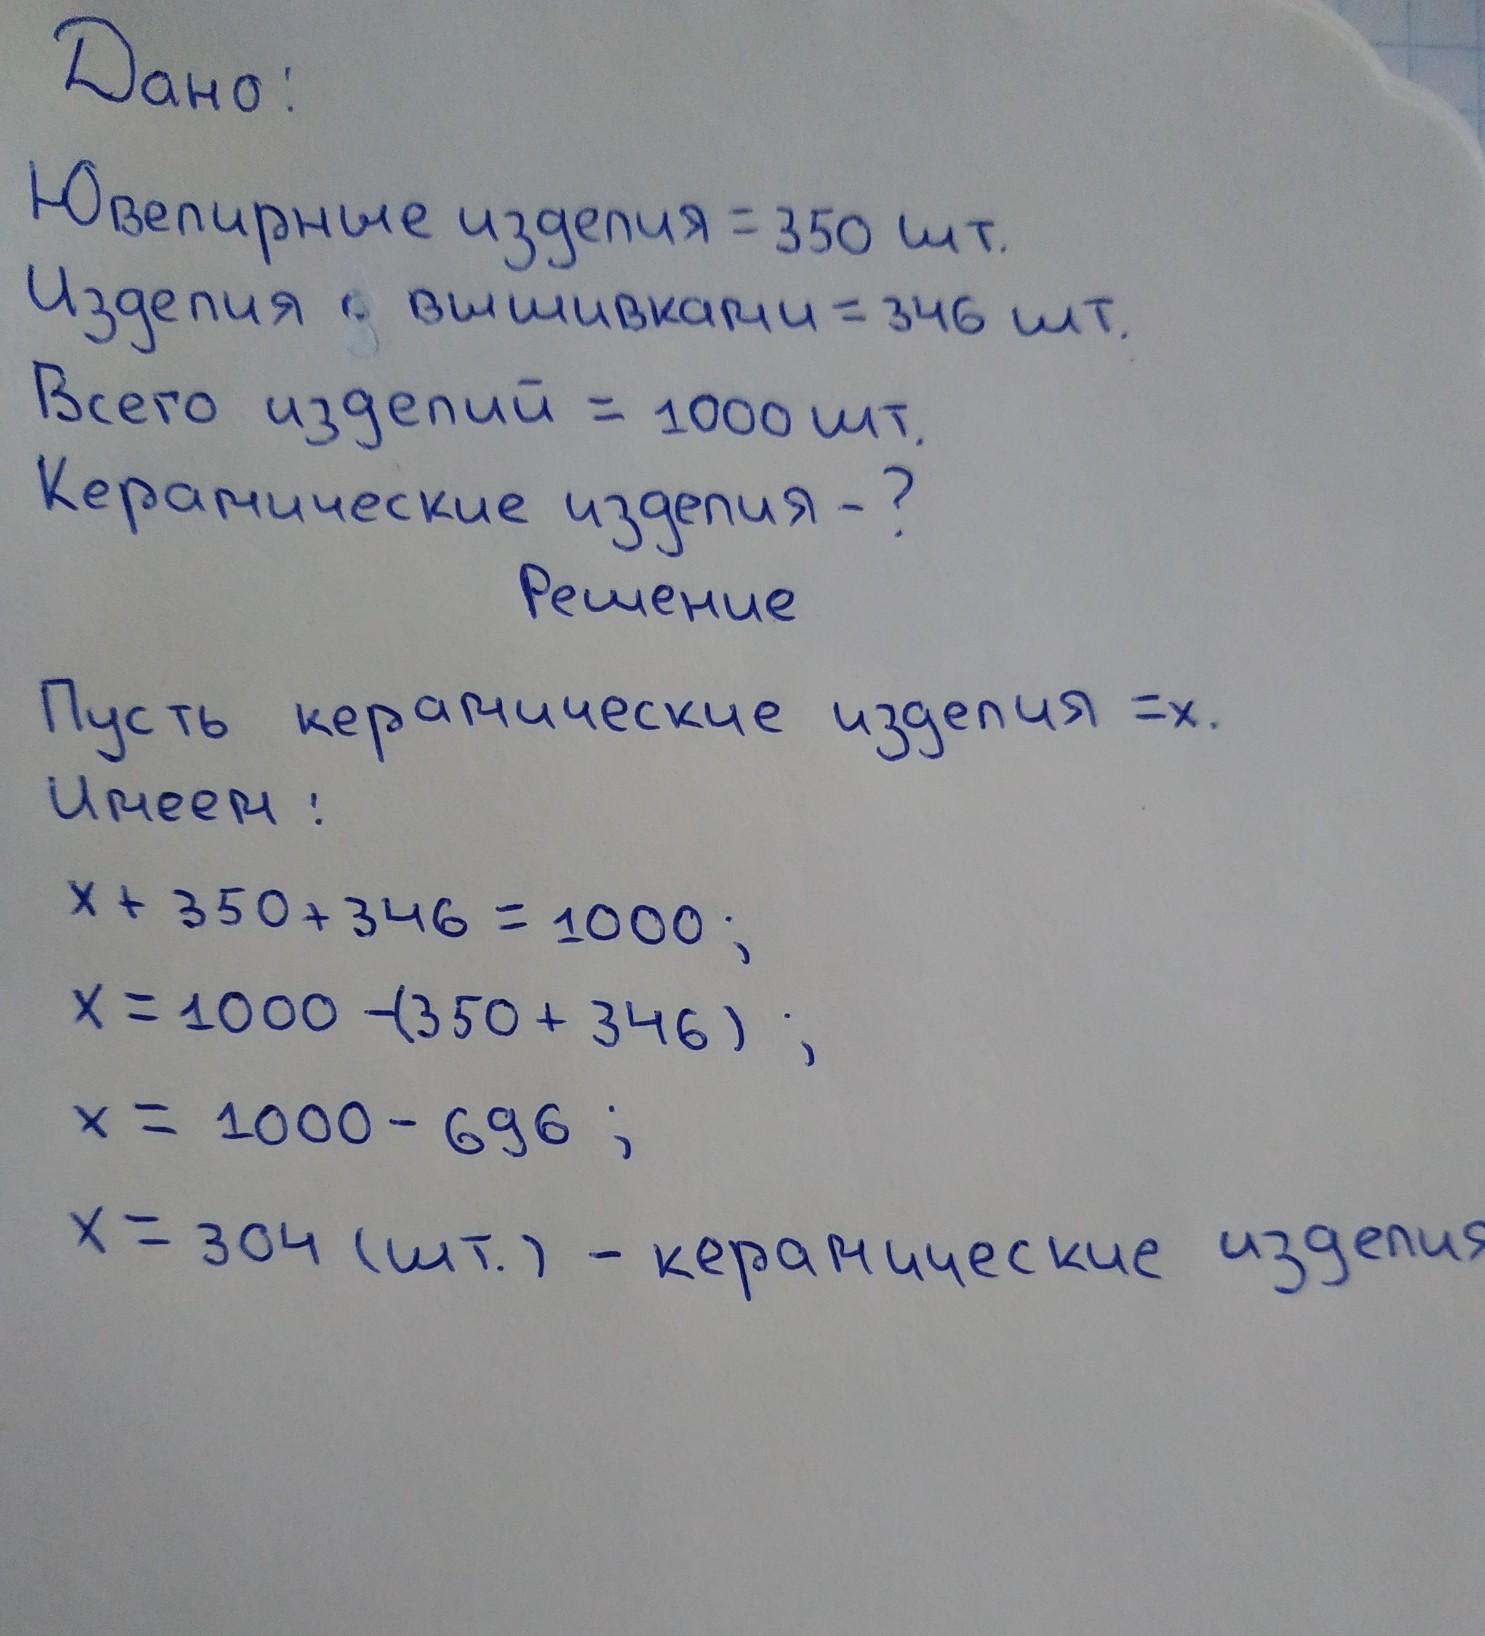 Дано:
Ювелирные изделия = 350 шт.
Изделия с вышивками = 346 шт.
Всего изделий = 1000 шт.
Керамические изделия - ?
Решение
Пусть керамические изделия = x.
Имеем:
x + 350 + 346 = 1000 ;
x = 1000 - (350 + 346) ;
x = 1000 - 696 ;
x = 304 (шт.) - керамические изделия